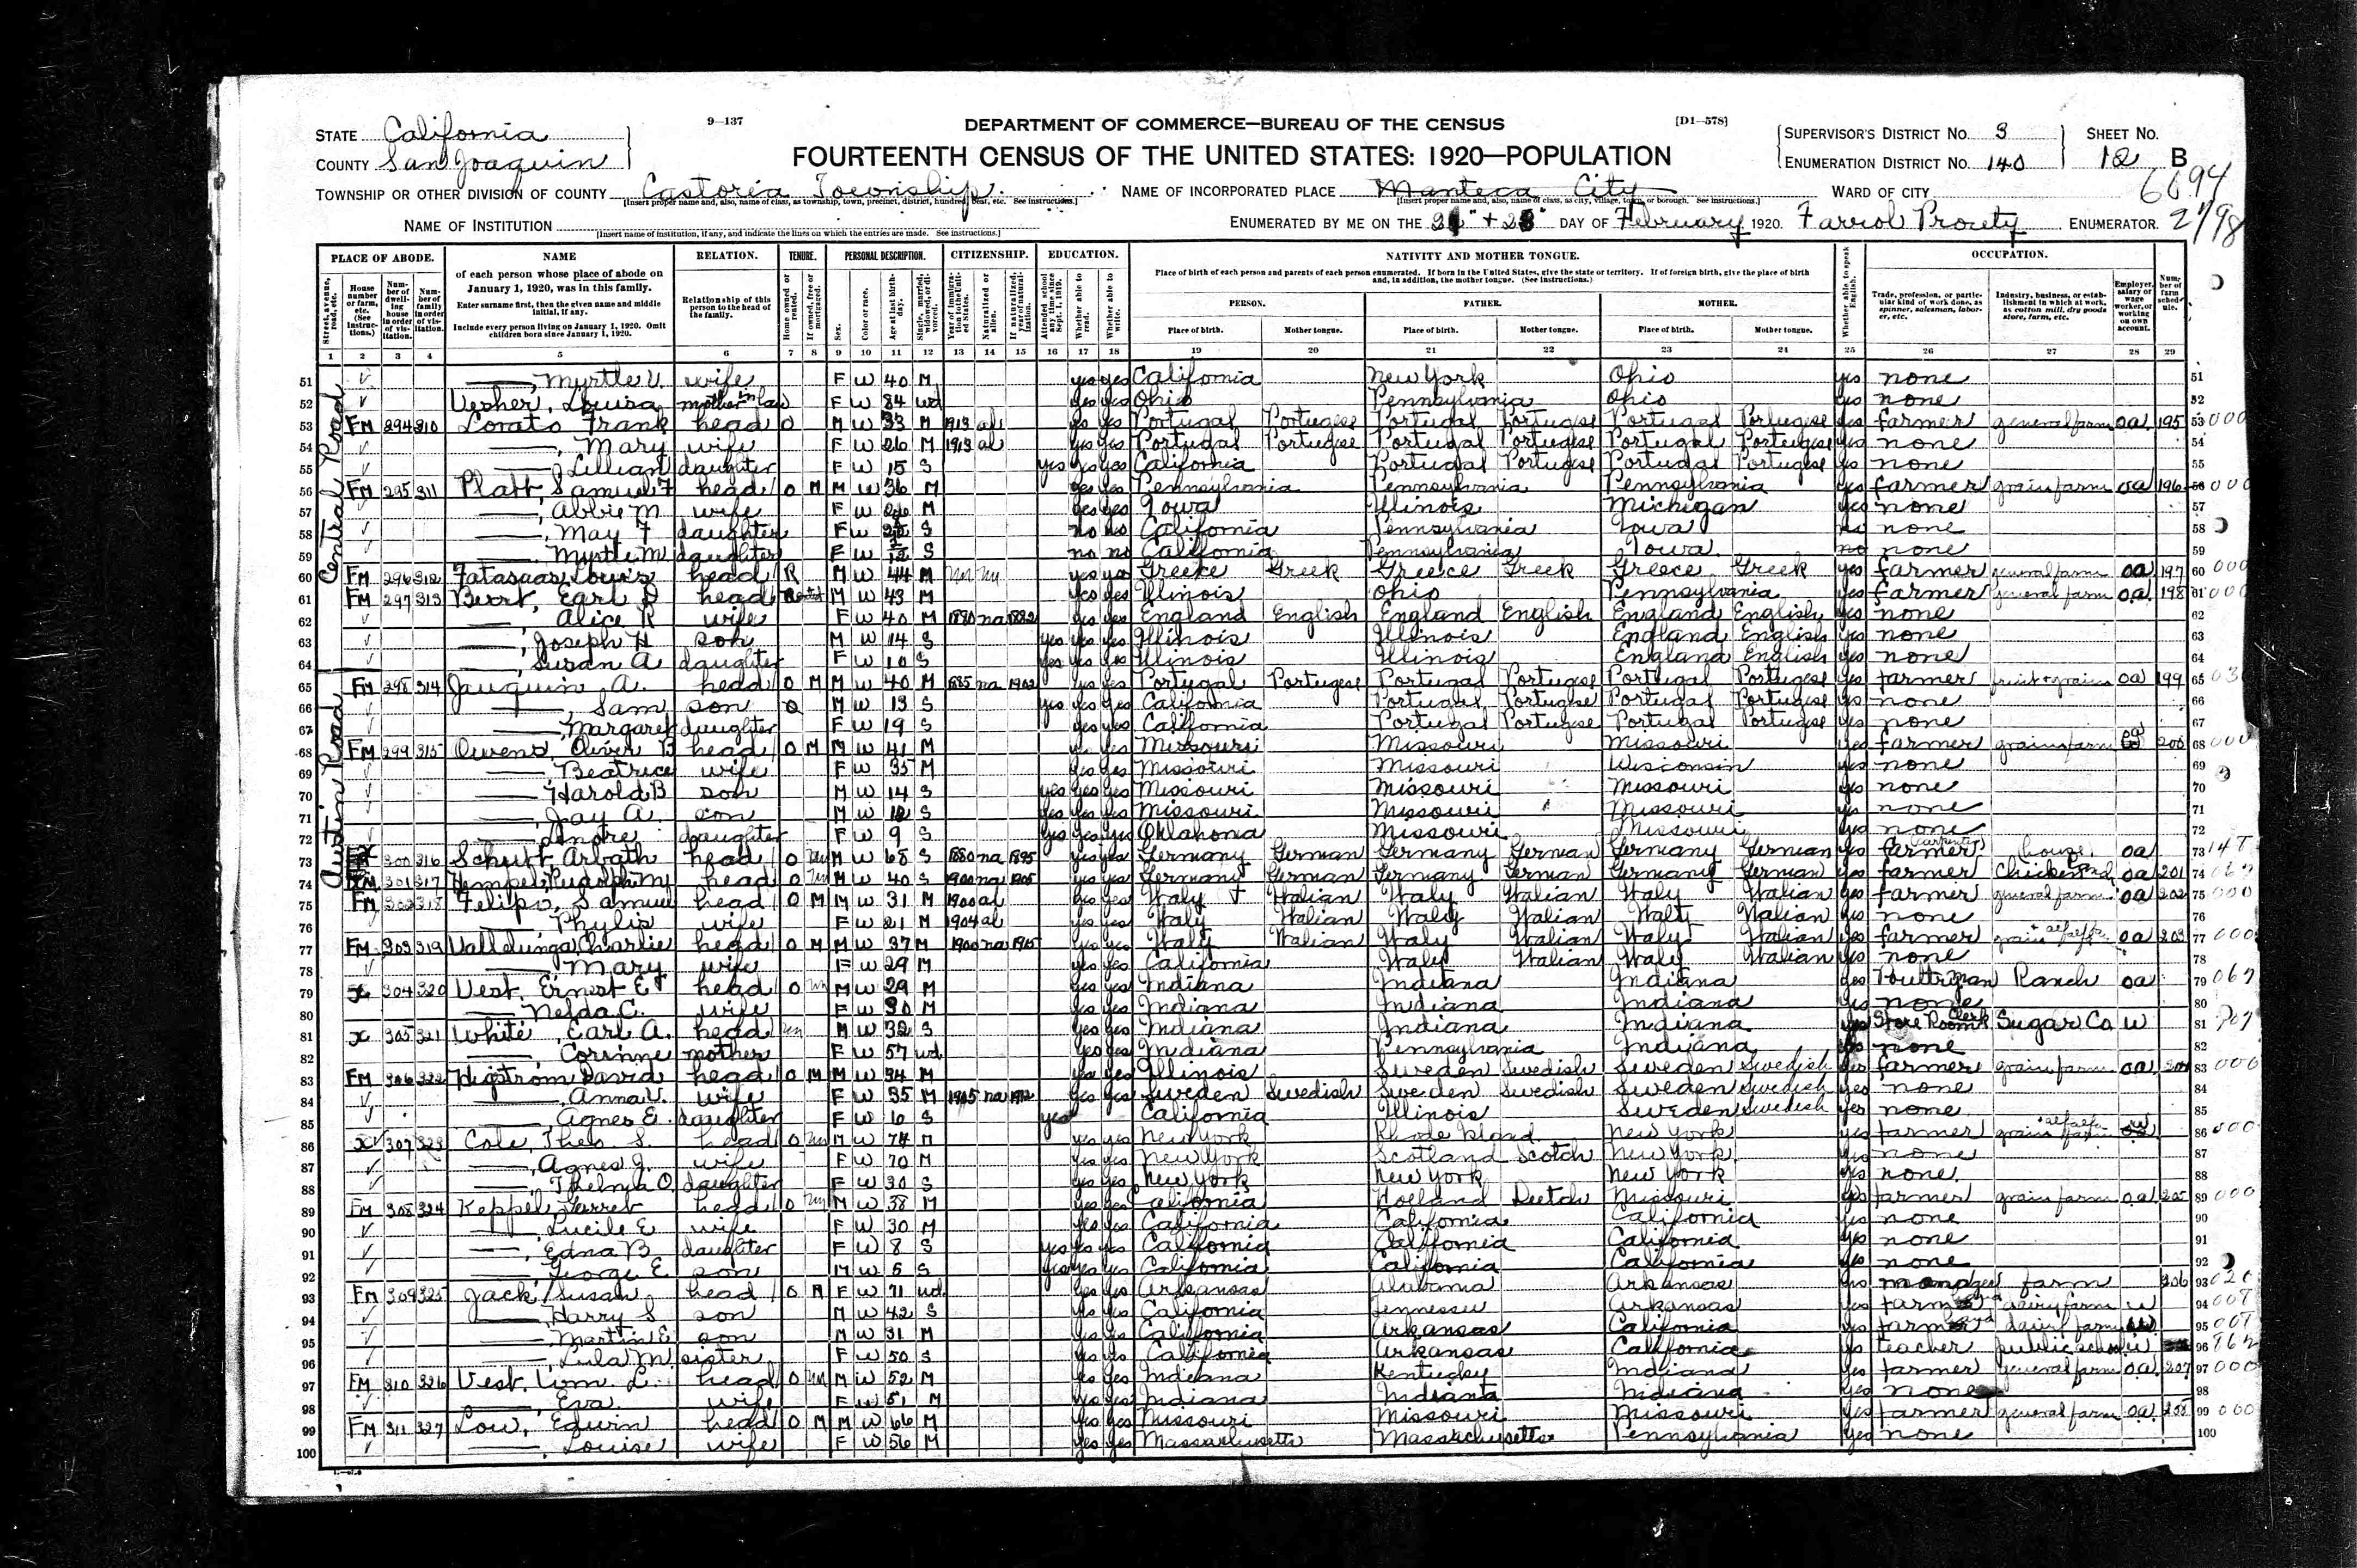 9—137
DEPARTMENT OF COMMERCE—BUREAU OF THE CENSUS
[D1—578]
STATE California
COUNTY San Joaquin
FOURTEENTH CENSUS OF THE UNITED STATES: 1920—POPULATION
SUPERVISOR'S DISTRICT NO. 3
ENUMERATION DISTRICT NO. 140
SHEET NO. 12 B
6694
TOWNSHIP OR OTHER DIVISION OF COUNTY Castoria Township.
[Insert proper name and, also, name of class, as township, town, precinct, district, hundred, beat, etc. See instructions.]
NAME OF INCORPORATED PLACE Manteca City
[Insert proper name and, also, name of class, as city, village, town, or borough. See instructions.]
WARD OF CITY
NAME OF INSTITUTION
[Insert name of institution, if any, and indicate the lines on which the entries are made. See instructions.]
ENUMERATED BY ME ON THE DAY OF February, 1920. Farrol Prouty ENUMERATOR.
2198
PLACE OF ABODE. NAME RELATION. TENURE. PERSONAL DESCRIPTION. CITIZENSHIP. EDUCATION. NATIVITY AND MOTHER TONGUE. OCCUPATION.
Street, avenue, road, etc.
House number or farm, etc. (See instructions.)
Number of dwelling house in order of visitation.
Number of family in order of visitation.
of each person whose place of abode on January 1, 1920, was in this family.
Enter surname first, then the given name and middle initial, if any.
Include every person living on January 1, 1920. Omit children born since January 1, 1920.
Relationship of this person to the head of the family.
Home owned or rented.
If owned, free or mortgaged.
Sex.
Color or race.
Age at last birthday.
Single, married, widowed, or divorced.
Year of immigration to the United States.
Naturalized or alien.
If naturalized, year of naturalization.
Attended school any time since Sept. 1, 1919.
Whether able to read.
Whether able to write.
Place of birth of each person and parents of each person enumerated. If born in the United States, give the state or territory. If of foreign birth, give the place of birth and, in addition, the mother tongue. (See instructions.)
PERSON. FATHER. MOTHER.
Place of birth. Mother tongue. Place of birth. Mother tongue. Place of birth. Mother tongue.
Whether able to speak English.
Trade, profession, or particular kind of work done, as spinner, salesman, laborer, etc.
Industry, business, or establishment in which at work, as cotton mill, dry goods store, farm, etc.
Employer, salary or wage worker, or working on own account.
Number of farm schedule.
1 2 3 4 5 6 7 8 9 10 11 12 13 14 15 16 17 18 19 20 21 22 23 24 25 26 27 28 29
Central Road
Austin Road
51 Myrtle V. wife F W 40 M yes yes California New York Ohio yes none 51
52 Louisa mother in law F W 84 wd yes yes Ohio Pennsylvania Ohio yes none 52
53 FM 294 310 Lorato Frank head O M W 33 M 1913 al yes yes Portugal Portugese Portugal Portugese Portugal Portugese yes farmer general farm oa 195 53 000
54 Mary wife F W 26 M 1913 al yes yes Portugal Portugese Portugal Portugese Portugal Portugese yes none 54
55 Lillian daughter F W 15 S yes yes yes California Portugal Portugese Portugal Portugese yes none 55
56 FM 295 311 Platt, Samuel F head O M M W 36 M yes yes Pennsylvania Pennsylvania Pennsylvania yes farmer grain farm oa 196 56 000
57 Abbie M wife F W 26 M yes yes Iowa Illinois Michigan yes none 57
58 May F daughter F W S no no California Pennsylvania Iowa no none 58
59 Myrtle M daughter F W S no no California Pennsylvania Iowa no none 59
60 FM 296 312 Louis head R M W 44 M yes yes Greece Greek Greece Greek Greece Greek yes farmer general farm oa 197 60 000
61 FM 297 313 Earl D head M W 43 M yes yes Illinois Ohio Pennsylvania yes farmer general farm oa 198 61 000
62 Alice R wife F W 40 M 1880 na 1882 yes yes England English England English England English yes none 62
63 Joseph H son M W 14 S yes yes yes Illinois Illinois England English yes none 63
64 Susan A daughter F W 10 S yes yes yes Illinois Illinois England English yes none 64
65 FM 298 314 Jauquin A. head O M M W 40 M 1885 na 1902 yes yes Portugal Portugese Portugal Portugese Portugal Portugese yes farmer fruit + grain oa 199 65
66 Sam son M W 13 S yes yes yes California Portugal Portugese Portugal Portugese yes none 66
67 Margaret daughter F W 19 S yes yes California Portugal Portugese Portugal Portugese yes none 67
68 FM 299 315 Owens, Oliver B head O M M W 41 M yes yes Missouri Missouri Missouri yes farmer grain farm 200 68 000
69 Beatrice wife F W 35 M yes yes Missouri Missouri Wisconsin yes none 69
70 Harold B son M W 14 S yes yes yes Missouri Missouri Missouri yes none 70
71 Jay A. son M W S yes yes yes Missouri Missouri Missouri yes none 71
72 Lenore daughter F W 9 S yes yes yes Oklahoma Missouri Missouri yes none 72
73 300 316 head O M W 68 S 1880 na 1895 yes yes Germany German Germany German Germany German yes carpenter house oa 73
74 FM 301 317 Hempel, Rudolph head O M W 40 S 1900 na 1905 yes yes Germany German Germany German Germany German yes farmer oa 201 74
75 FM 302 318 Felipo, Samuel head O M M W 31 M 1900 al yes yes Italy Italian Italy Italian Italy Italian yes farmer general farm oa 202 75 000
76 Phylis wife F W 21 M 1904 al yes yes Italy Italian Italy Italian Italy Italian yes none 76
77 FM 303 319 Valledunga, Charlie head O M M W 37 M 1900 na 1915 yes yes Italy Italian Italy Italian Italy Italian yes farmer grain + alfalfa oa 203 77 000
78 Mary wife F W 29 M yes yes California Italy Italian Italy Italian yes none 78
79 x 304 320 Vest, Ernest E head O M W 29 M yes yes Indiana Indiana Indiana yes Poultryman Ranch oa 79
80 Nelda C. wife F W 30 M yes yes Indiana Indiana Indiana yes none 80
81 x 305 321 White, Earl A. head M W 32 S yes yes Indiana Indiana Indiana yes Store Room Clerk Sugar Co W 81
82 Corinne mother F W 57 wd yes yes Indiana Pennsylvania Indiana yes none 82
83 FM 306 322 Higstrom David head O M M W 34 M yes yes Illinois Sweden Swedish Sweden Swedish yes farmer grain farm oa 204 83 000
84 Anna V. wife F W 35 M 1905 na 1912 yes yes Sweden Swedish Sweden Swedish Sweden Swedish yes none 84
85 Agnes E. daughter F W 6 S yes California Illinois Sweden Swedish yes none 85
86 x 307 323 Cole, Theo. S. head O M W 74 M yes yes New York Rhode Island New York yes farmer grain + alfalfa farm 86 000
87 Agnes J. wife F W 70 M yes yes New York Scotland Scotch New York yes none 87
88 Thelma O. daughter F W 30 S yes yes New York New York New York yes none 88
89 FM 308 324 Keppel, Garret head O M W 38 M yes yes California Holland Deetch Missouri yes farmer grain farm oa 205 89 000
90 Lucile E wife F W 30 M yes yes California California California yes none 90
91 Edna B daughter F W 8 S yes yes yes California California California yes none 91
92 George E. son M W 5 S yes yes yes California California California yes none 92
93 FM 309 325 Jack, Susan head O M F W 71 wd yes yes Arkansas Alabama Arkansas yes manager farm 206 93
94 Harry S son M W 42 S yes yes California Tennessee Arkansas yes farm dairy farm w 94
95 Martin E. son M W 31 M yes yes California Arkansas California yes farm dairy farm 95
96 Lula M sister F W 50 S yes yes California Arkansas California yes teacher public school 96
97 FM 310 326 Vest, Wm L. head O M W 52 M yes yes Indiana Kentucky Indiana yes farmer general farm oa 207 97 000
98 Eva wife F W 51 M yes yes Indiana Indiana Indiana yes none 98
99 FM 311 327 Low, Edwin head O M M W 66 M yes yes Missouri Missouri Missouri yes farmer general farm oa 99 000
100 Louise wife F W 56 M yes yes Massachusetts Massachusetts Pennsylvania yes none 100